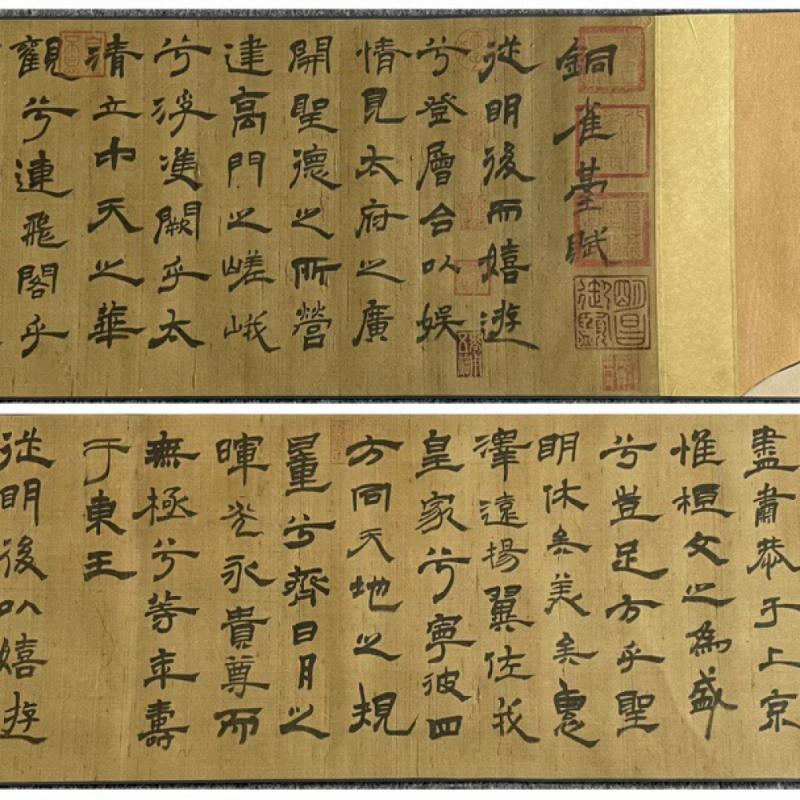 銅雀臺賦
從明後而嬉遊
兮登層台以娛
情見太府之廣
開聖德之所營
建高門之嵯峨
兮浮雙闕乎太
清立中天之華
觀兮連飛閣乎
盡肅恭于上京
惟桓文之為盛
兮豈足方乎聖
明休矣美矣惠
澤遠揚翼佐我
皇家兮寧彼四
方同天地之規
量兮齊日月之
暉光永貴尊而
無極兮等年壽
于東王
從明後以嬉遊